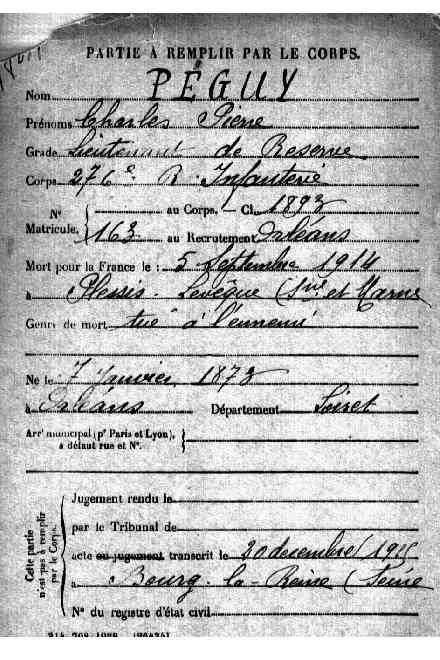 PARTIE À REMPLIR PAR LE CORPS.
Nom PÉGUY
Prénoms Charles Pierre
Grade Lieutenant de Réserve
Corps 276e R. Infanterie
N° au Corps. — Cl. 1893
Matricule. 163 au Recrutement Orléans
Mort pour la France le : 5 Septembre 1914
à Plessis-Levêque (Sne et Marne
Genre de mort tué à l'ennemi
Né le 7 Janvier 1873
à Orléans Département Loiret
Arrt municipal (pr Paris et Lyon),
à défaut rue et N°.
Cette partie
n'est pas à remplir
par le Corps.
Jugement rendu le
par le Tribunal de
acte ou jugement transcrit le 20 decembre 1915
à Bourg-la-Reine (Seine
N° du registre d'état civil